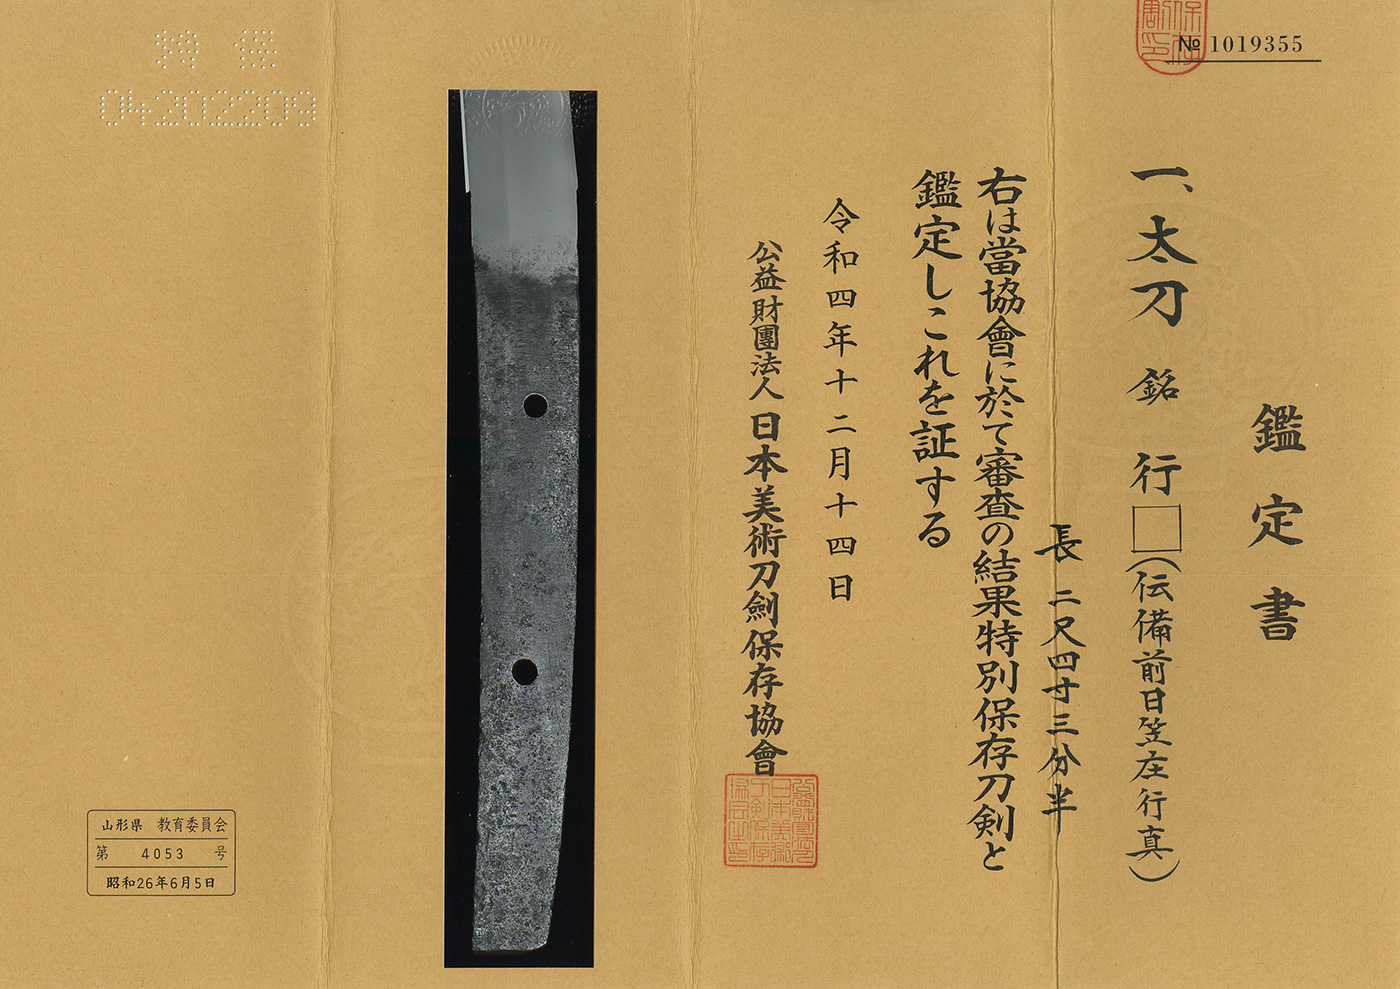 № 1019355
鑑定書
一、太刀 銘 行□(伝備前日笠庄行真)
長 二尺四寸三分半
右は當協會に於て審査の結果特別保存刀剣と
鑑定しこれを証する
令和四年十二月十四日
公益財團法人 日本美術刀劍保存協會
特保
04202209
山形県 教育委員会
第 4053 号
昭和26年6月5日